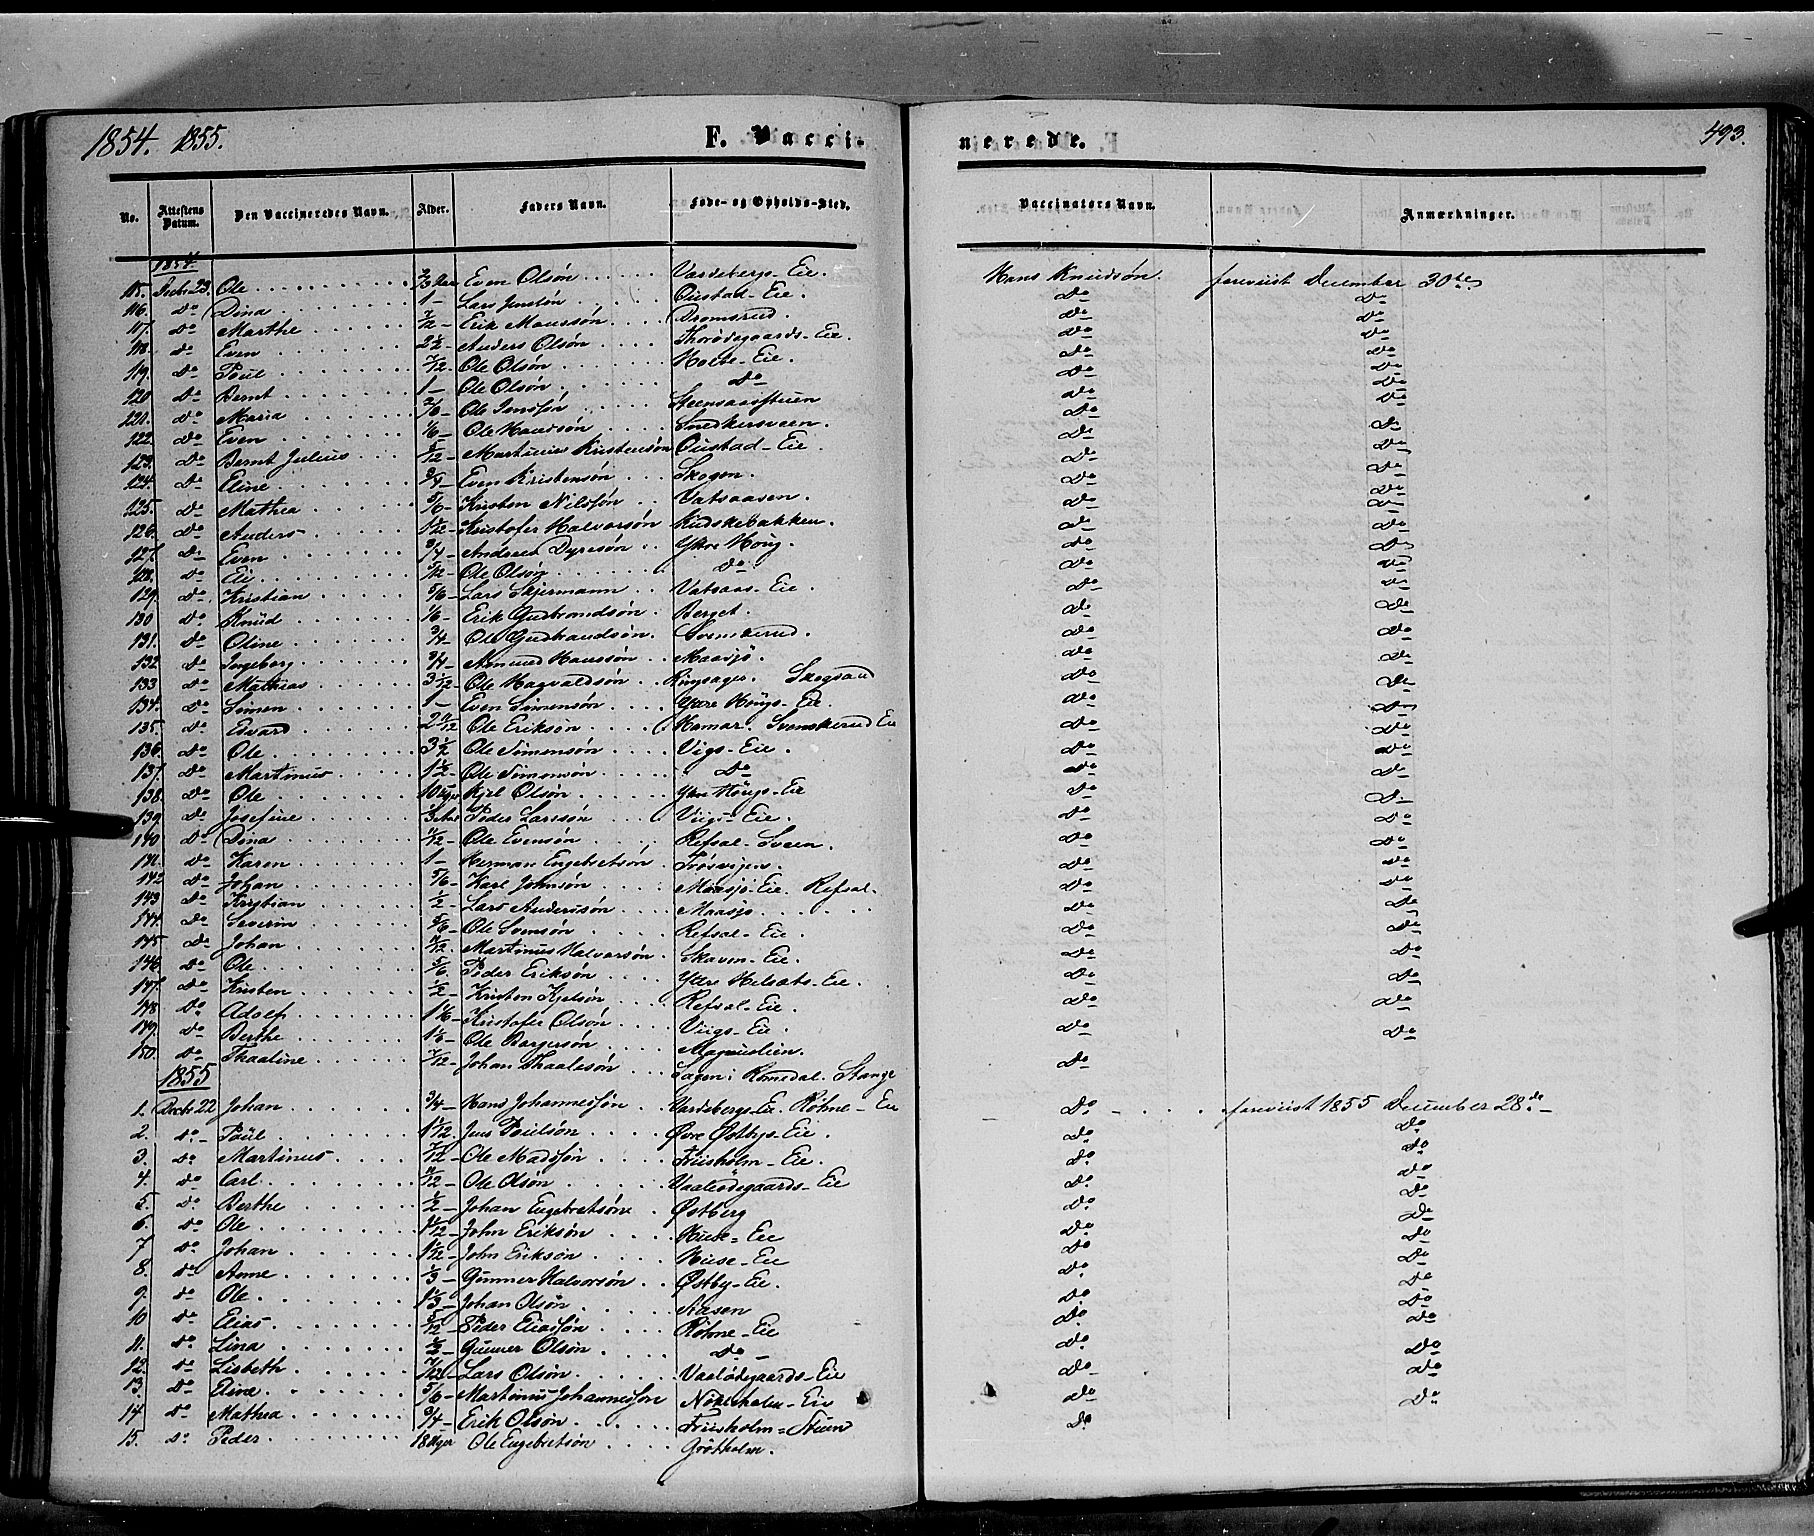 1854. 1855.
F. Vacci-
nerede.
493.
No. Attestens Datum. Den Vaccineredes Navn. Alder. Faders Navn. Føde- og Opholds-Sted. Vaccinators Navn. Anmærkninger.
1854.
115. Decbr 23. Ole Even Olsøn Vardebergs-Eie. Hans Knudsøn. foreviist December 30te
116. Do Dina 1 - Lars Jensøn Oustad-Eie. Do Do
117. Do Marthe 7/12 - Erik Monssøn Dromsrud. Do Do
118. Do Even 2 1/2 - Anders Olsøn Thorødegaards-Eie. Do Do
119. Do Poul 7/12 Ole Olsøn Holte-Eie. Do Do
120 Do Bernt 1 - Ole Olsøn Do Do Do
121. Do Maria Ole Jensøn Steensaasstuen Do Do
122. Do Even 1/6 - Ole Knudsøn Smedkersveen. Do Do
123. Do Bernt Julius Martinus Kristensøn Oustad-Eie. Do Do
124. Do Eline 3/4 - Even Kristensøn Skogen. Do Do
125. Do Mathea 5/6 - Kristen Nilssøn Vatsaasen. Do Do
126. Do Anders Kristofer Halvorsøn Kudskebakken. Do Do
127. Do Even 3/4 - Andreas Dyresøn Ytre Houg. Do Do
128. Do Eli Ole Olsøn Do Do Do
129. Do Kristian 5/6 - Lars Skjermann Vatsaas-Eie. Do Do
130 Do Knud 1/6 - Erik Gudbrandsøn Berget. Do Do
131. Do Oline 3/4 - Ole Gudbrandsøn. Svenskerud. Do Do
132 Do Ingeborg 3/4 - Amund Hanssøn Maasjø. Do Do
133 Do Mathias Ole Hagvaldsøn Ringsager. Skogsrud Do Do
134. Do Simen 1 - Even Simensøn Ytre Hougs-Eie. Do Do
135. Do Edvard Ole Eriksøn Hamar. Svenskerud Eie Do Do
136. Do Ole 3 1/2 Ole Simensøn Vigs-Eie. Do Do
137. Do Martinus 1 1/2 - Ole Simensøn Do Do Do
138. Do Ole 10 Uger Kjel Olsøn Ytre Hougs-Eie Do Do
139. Do Josefine Peder Larssøn Viigs-Eie. Do Do
140 Do Dina Ole Evensøn Refsal-Sveen. Do Do
141. Do Karen 1 - Herman Engebretsøn Frøsvigen. Do Do
142 Do Johan 5/6 - Karl Johnsøn Maasjø-Eie. Refsal. Do Do
143 Do Kristian 1/2 - Lars Anderssøn Maasjø Do Do
144. Do Severin 5/6 - Ole Svensøn Refsal-Eie. Do Do
145 Do Johan Martinus Halvorsøn Skaven-Eie. Do Do
146. Do Ole 5/6. Peder Eriksøn Ytre Helsæts-Eie. Do Do
147. Do Kristen 1/2 - Kristen Kjelsøn Refsal-Eie. Do Do
148. Do Adolf 1 1/6 - Kristofer Olsøn Viigs-Eie. Do Do
149. Do Berthe Ole Borgersøn Magnuslien. Do Do
150. Do Thaaline 7/12 - Johan Thaalesøn Sagen i Romedal. Stange Do
1855
1. Decbr 22 Johan 3/4 - Hans Johannessøn Vardebergs-Eie. Røhne-Eie Do foreviist 1855 December 28de
2. Do Poul Jens Poulsøn Øvre Østbys-Eie. Do Do
3. Do Martinus Ole Madssøn Friisholm-Eie. Do Do
4. Do Carl Ole Olsøn Vaalødegaards-Eie Do Do
5. Do Berthe 1/2 - Johan Engebretsøn Østberg Do Do
6. Do Ole John Eriksøn Huse-Eie Do Do
7. Do Johan John Eriksøn Huse-Eie Do Do
8. Do Anne 1/3 - Gunner Halvorsøn Østby-Eie. Do Do
9. Do Ole Johan Olsøn Aasen Do Do
10 Do Elias Peder Eliassøn Røhne-Eie Do Do
11. Do Lina Gunner Olsøn Do Do Do
12. Do Lisbeth 7/12 Lars Olsøn Vaalødegaards-Eie Do Do
13. Do Eline 5/6 - Martinus Johannessøn Nordsholm-Eie Do Do
14. Do Mathea 3/4 - Erik Olsøn Friisholm-Stuen Do
15. Do Peder 18 Uger Ole Engebretsøn Grøtholm.